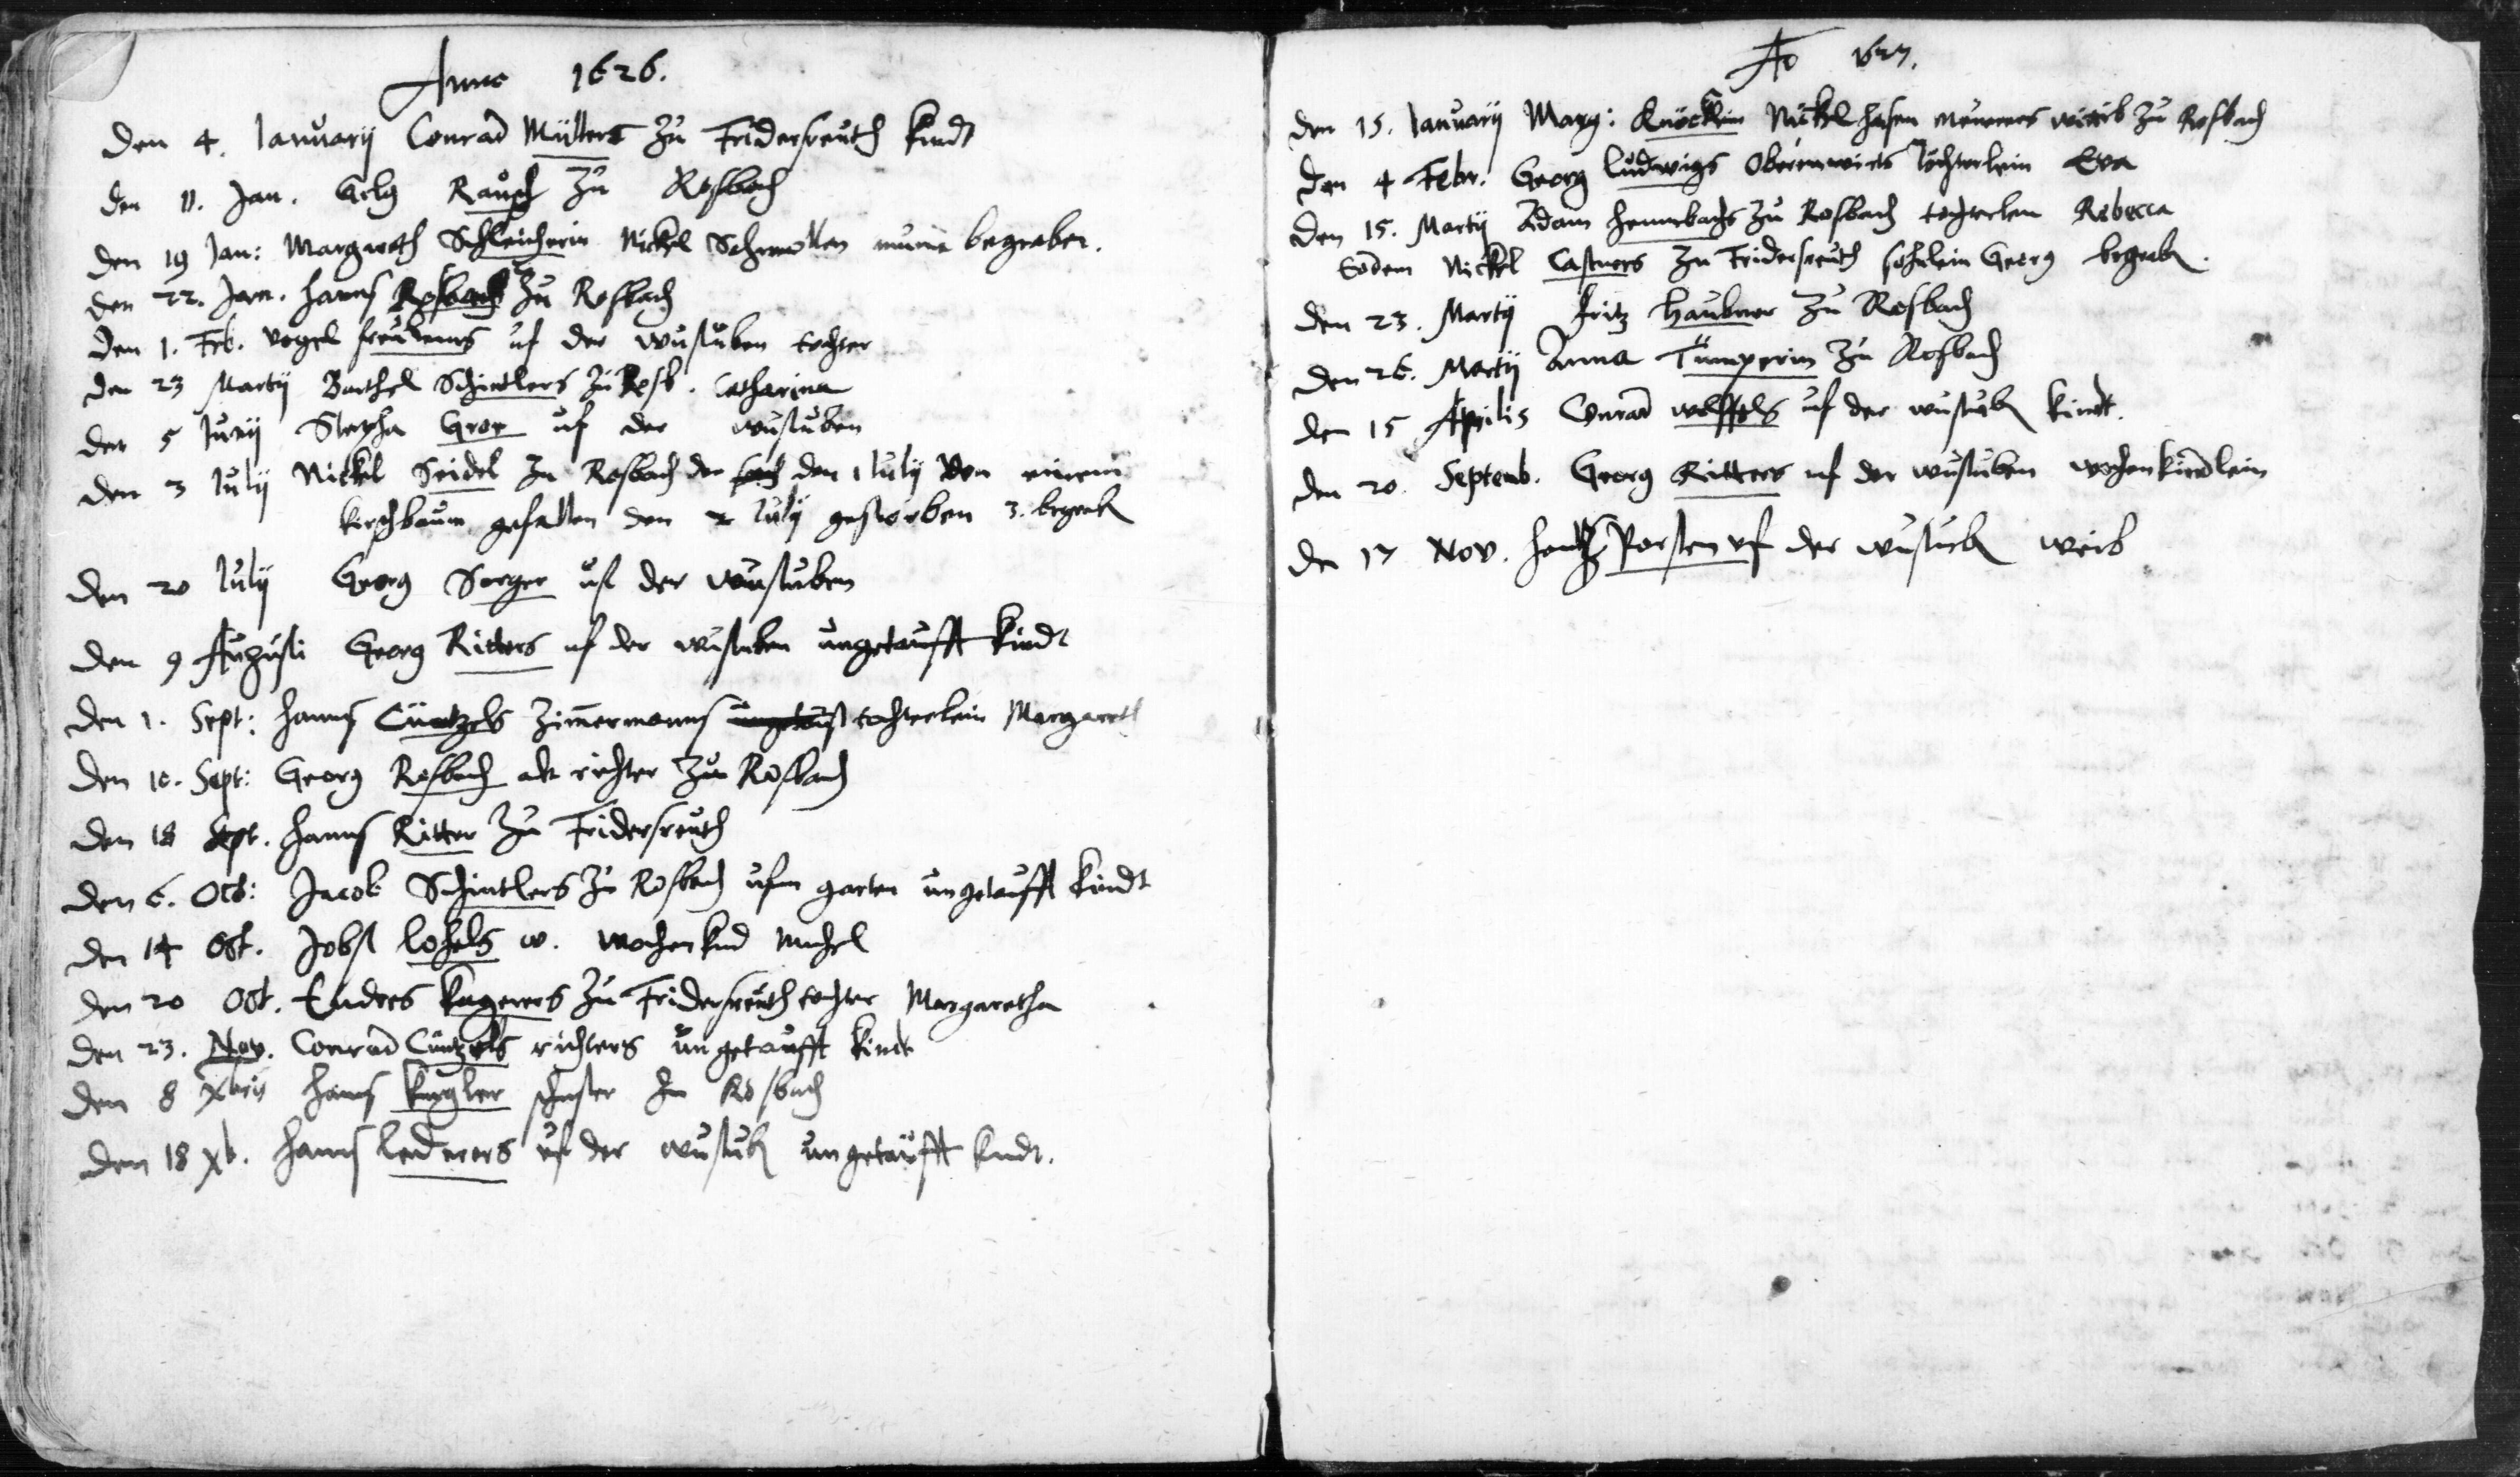 Anno 1626.
Den 4. Januarij Conrad Müllers zu Fridersreuth kindt
den 11. Jan. Gelg Rausch zu Rosbach
den 19 Jan: Margreth Schleicherin Nickel begraben.
den 22. Jan. Hanns Rosbach zu Rosbach
Den 1. Feb. Vogel uf der wustuben tochter
den 23 Martij Barthel Schindlers zu Rosb. Catharina
der 5 Junij Stepha Grop uf der wustuben
den 3 July Nickel Seidel zu Rosbach der den 1 July von einem
kirschbaum gefallen den 2 July gestorben 3. begrab
den 20 July Georg Sorger uf der wustuben
den 9 Augusti Georg Ritters uf der wustuben ungetaufft kindt
den 1. Sept: Hanns Cüntzels Zimmermanns tochterlein Margareth
den 10. Sept: Georg Rosbach alt richter zu Rosbach
den 18 Sept. Hanns Ritter zu Fridersreuth
den 6. Octb: Jacob Schindlers zu Rosbach ufm garten ungetaufft kindt
den 14 Oct. Jobst Lohels w. wochen kind Michel
den 20 Oct. Endres Kagerers zu Fridersreuth tochter Margaretha
den 23. Nov. Conrad Cüntzels richters ungetaufft kindt
den 8 Xbris Hanns Kugler schuster zu Rosbach
den 18 Xb. Hanns Lederers uf der wustub ungetaufft kindt.
Ao 1627.
den 15. Januarij Marg: Knöcklin Nickel Hasen wittib zu Rosbach
den 4 Febr. Georg Ludwigs töchterlein Eva
den 15. Martij Adam Hennebachs zu Rosbach tochterlen Rebecca
Eodem Nickel Castners zu Fridersreuth sohnlein Georg begrab.
den 23. Martij Fritz Haubner zu Rosbach
den 26. Martij Anna Tümperin zu Rosbach
den 15 Aprilis Conrad Wölffels uf der wustub kindt.
den 20. Septemb. Georg Ritters uf der wustuben wochenkindlein
den 17 Nov. Porsten uf der wustub weib